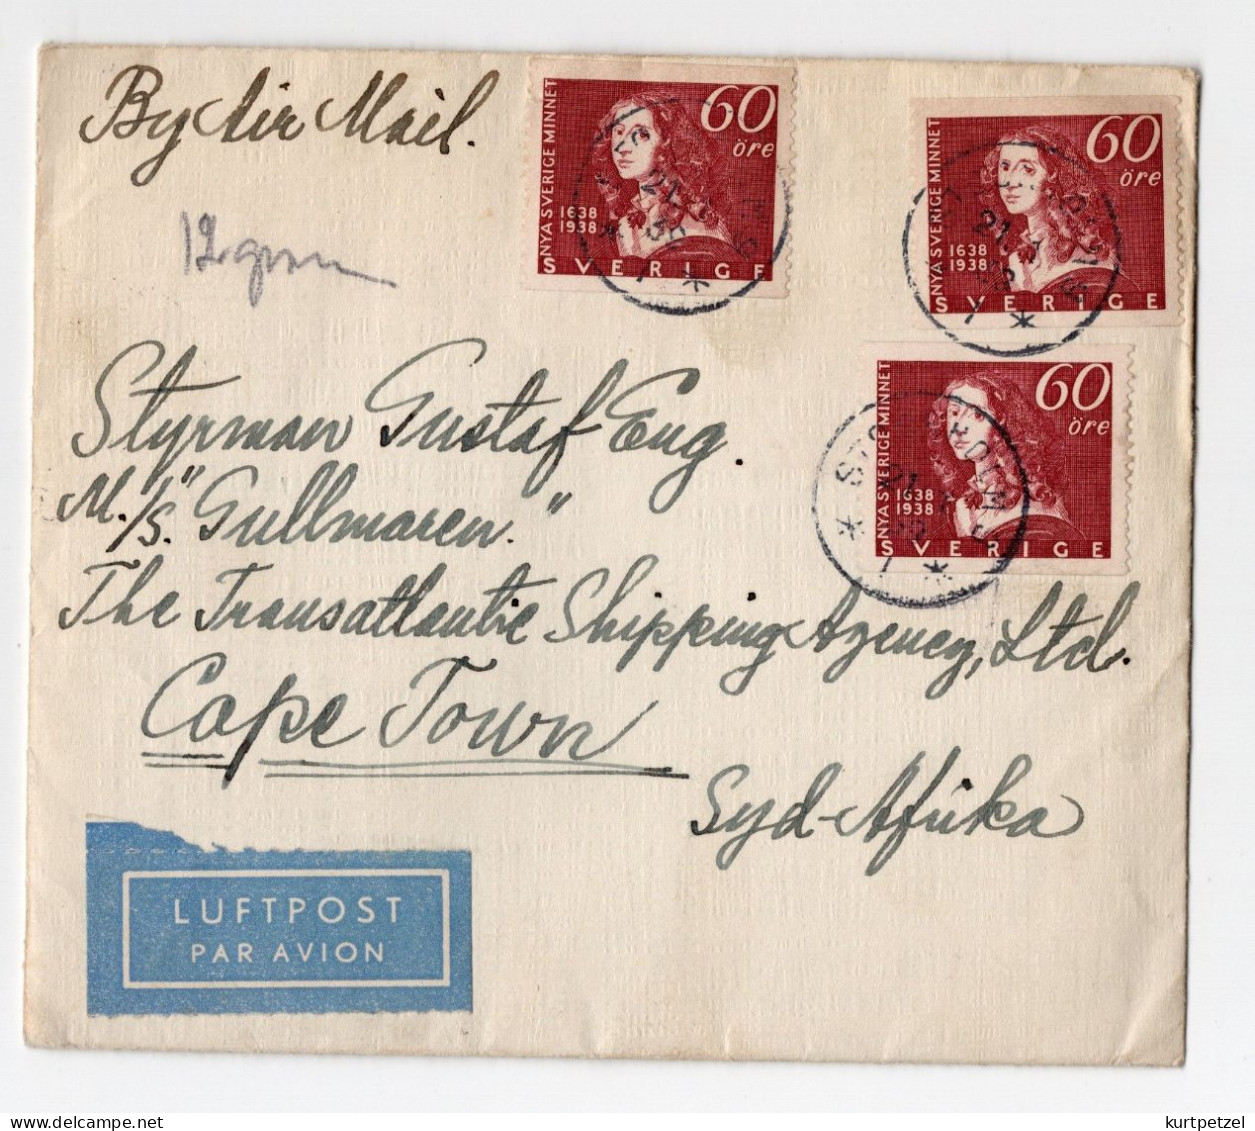 By Air Mail.
12 gram
60
öre
NYA SVERIGE MINNET
1638
1938
SVERIGE
60
öre
NYA SVERIGE MINNET
1638
1938
SVERIGE
60
öre
NYA SVERIGE MINNET
1638
1938
SVERIGE
Styrman Gustaf Eng.
M./s. "Gullmaren."
The Transatlantic Shipping Agency, Ltd.
Cape Town
Syd-Afrika
LUFTPOST
PAR AVION
kurtpetzel